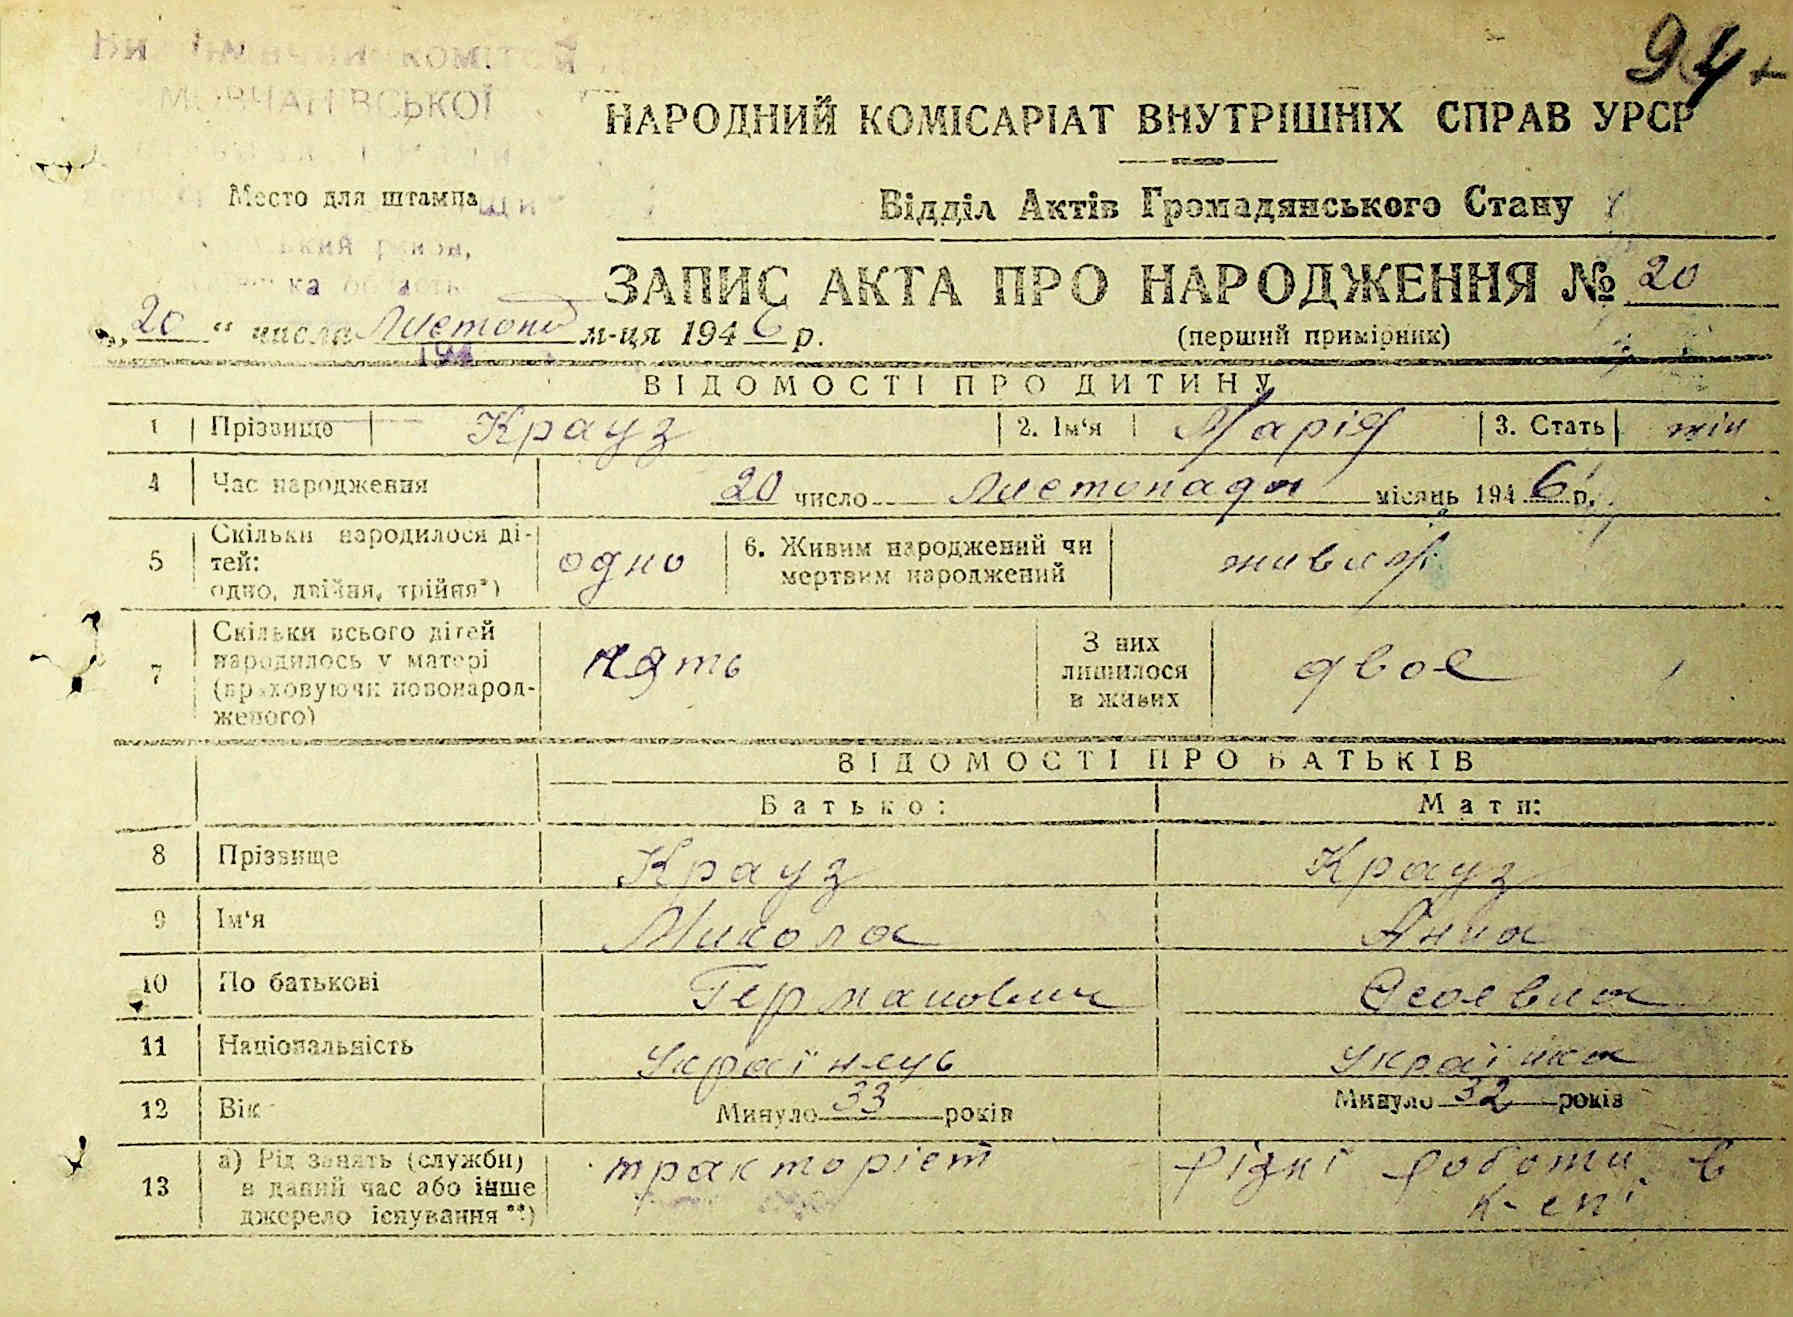 94
МОВЧАНІВСЬКОЇ
НАРОДНИЙ КОМІСАРІАТ ВНУТРІШНІХ СПРАВ УРСР
Место для штампа
Відділ Актів Громадянського Стану
область
ЗАПИС АКТА ПРО НАРОДЖЕННЯ № 20
„20“ числа Листопад м-ця 1946 р.
(перший примірник)
194
ВІДОМОСТІ ПРО ДИТИНУ
1 Прізвище Крауз 2. Ім‘я Марія 3. Стать жін
4 Час народження 20 число Листопада місяць 1946 р.
5 Скільки народилося ді-
тей:
одно, двійня, трійня*) одно 6. Живим народжений чи
мертвим народжений живая
7 Скільки всього дітей
народилось у матері
(враховуючи новонарод-
женого) пять З них
лишилося
в живих двоє
ВІДОМОСТІ ПРО БАТЬКІВ
Батько: Мати:
8 Прізвище Крауз Крауз
9 Ім‘я Микола Анна
10 По батькові Германович
11 Національність Українець Українка
12 Вік Минуло 33 років Минуло 32 років
13 а) Рід занять (служби)
в даний час або інше
джерело існування**) тракторіст різні роботи в
к-спі